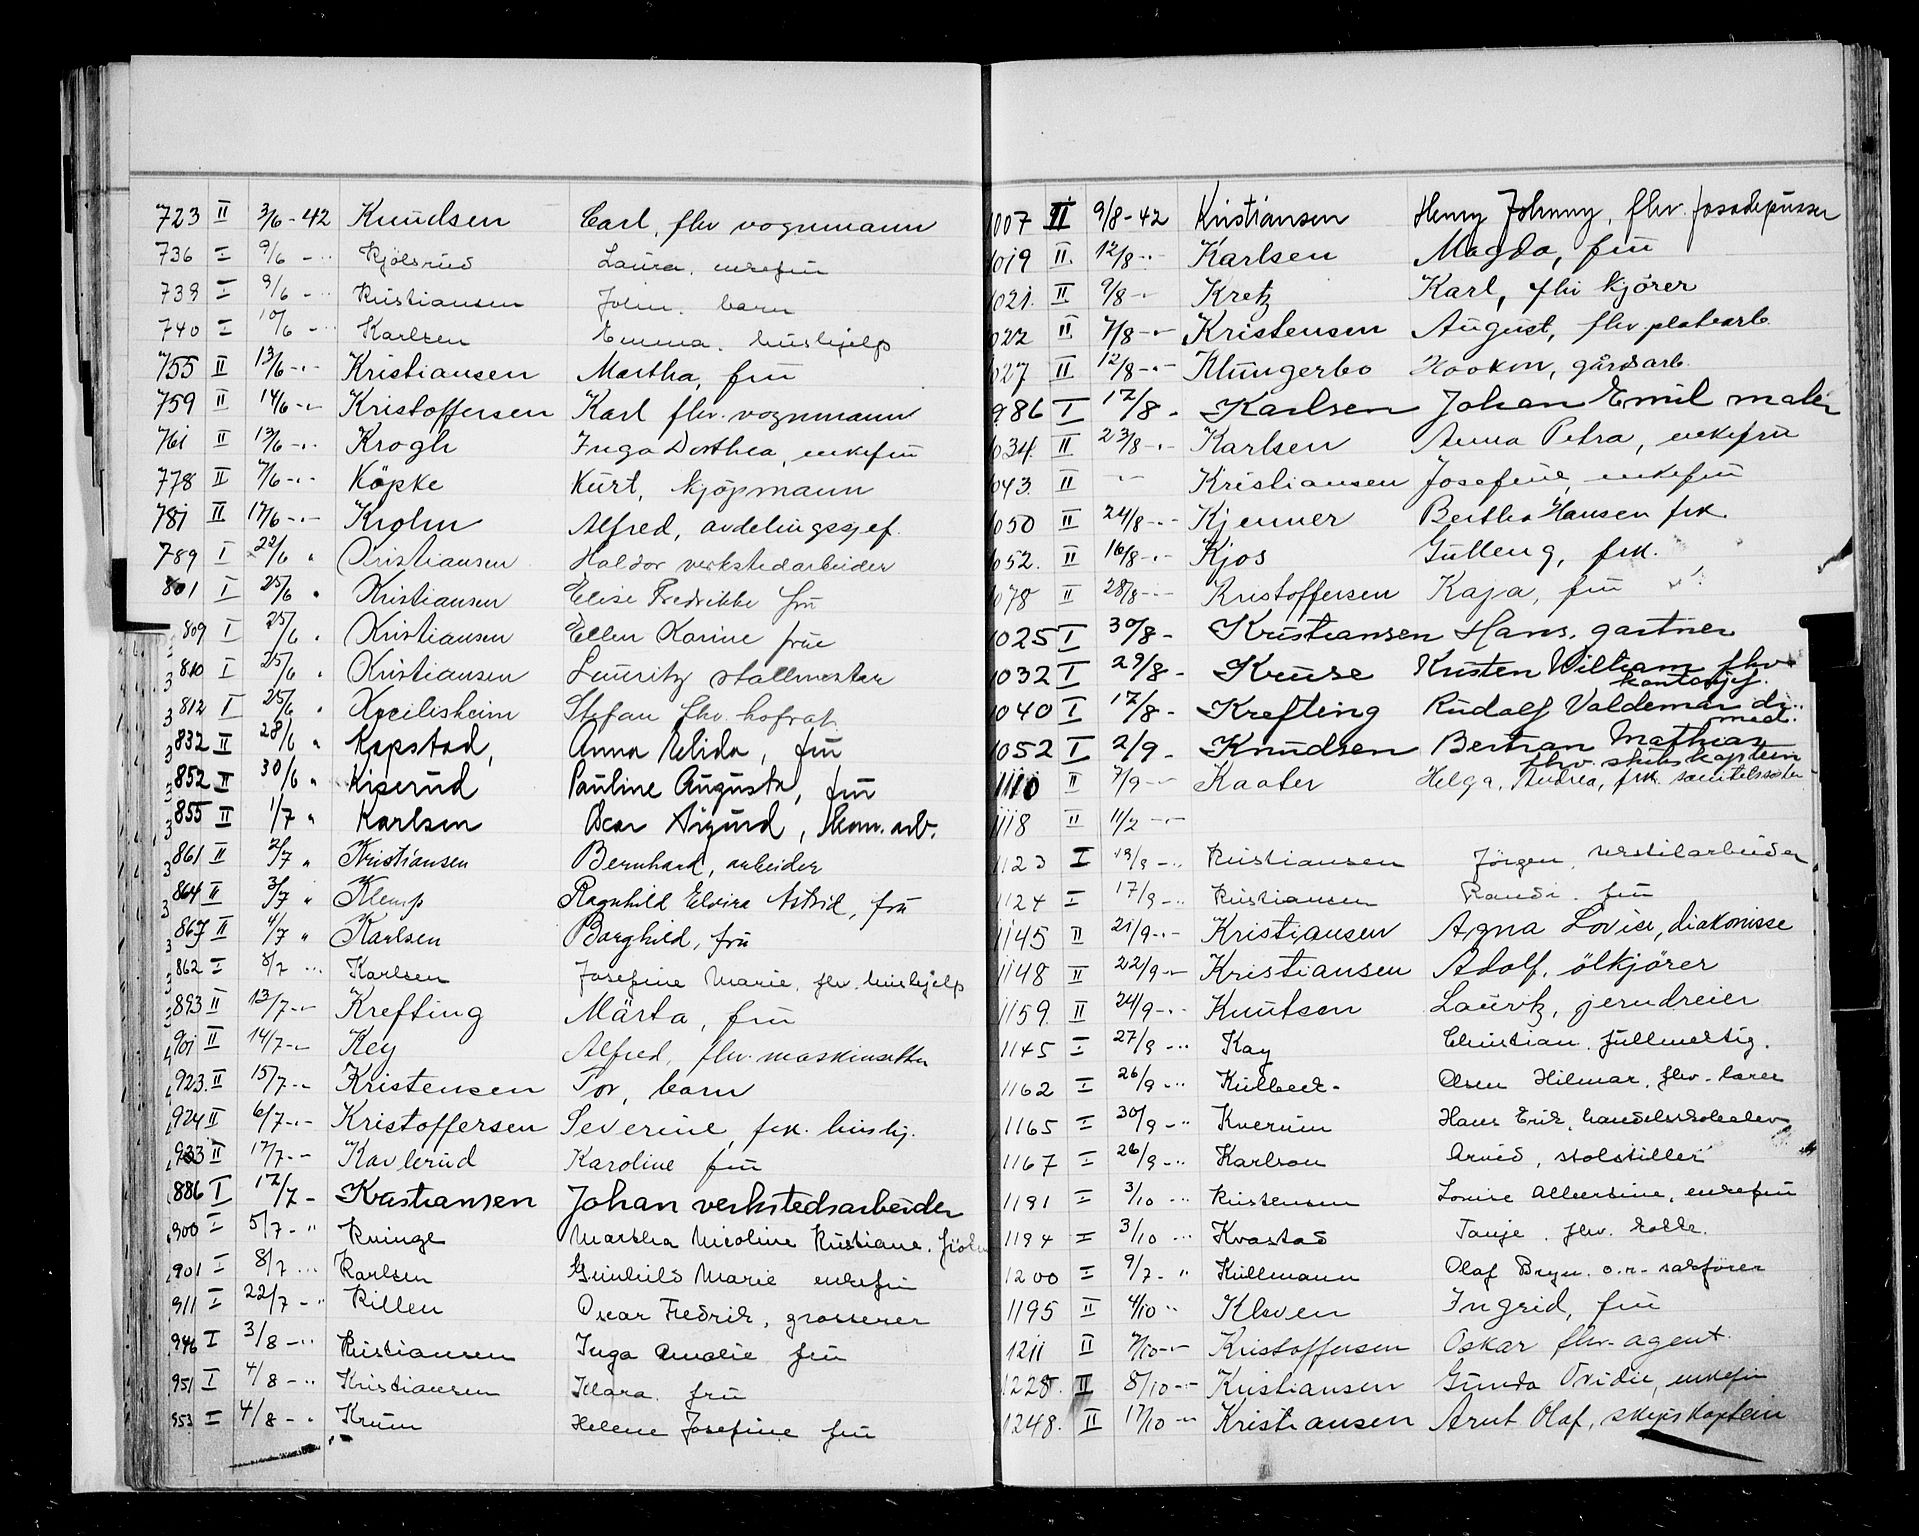 723 II 3/6 - 42 Knudsen Carl, fhv vognmann
736 I 9/6 - " Kjölsrud Laura, enkefru
739 I 9/6 - " Kristiansen John. barn
740 I 10/6 - " Karlsen Emma. hushjelp
755 II 13/6 - " - Kristiansen Martha, fru
759 II 14/6 - " - Kristoffersen Karl fhv. vognmann
761 II 13/6 - " - Krogh Inga Dorthea, enkefru
778 II 7/6 - " - Köpke Kurt, kjöpmann
781 II 17/6 - " - Krohn Alfred, avdelingssjef.
789 I 22/6 " Kristiansen Haldor verkstedarbeider
801 I 25/6 " Kristiansen Elise Fredrikke fru
809 I 25/6 " Kristiansen Ellen Karine frue
810 I 25/6 " Kristiansen Lauritz stallmester
812 I 25/6 " Stefan fhv. hofrat
832 II 28/6 " Kapstad, Anna Elida, fru
852 II 30/6 " Kiserud Pauline Augusta, fru
855 II 1/7 " Karlsen Oscar Sigurd, kom. arb.
861 II 2/7 " Kristiansen Bernhard, arbeider
864 II 3/7 " Klemp Ragnhild Elvira Astrid, fru
867 II 4/7 " Karlsen Borghild, fru
862 I 8/7 " Karlsen Josefine Marie, fhv. hushjelp
893 II 13/7 - " - Krefting Märta, fru
901 II 14/7 - " - Key Alfred, fhv. maskinsetter
923. II 15/7 - " - Kristensen Tor, barn
924 II 6/7 - " - Kristoffersen Severine, frk. hushj.
933 II 17/7 - " - Kavlerud Karoline fru
886 I 12/7 - Kristiansen Johan verkstedsarbeider
900 I 5/7 - " Kninge Martha Nicoline Kristiane.
901 I 8/7 - " Karlsen Gunhild Marie enkefru
911 I 22/7 - " Killen Oscar Fredrik, grosserer
946 I 3/8 - " Kristiansen Inga Amalie fru
951 I 4/8 - " Kristiansen Klara fru
953 I 4/8 - " Krum Helene Josefine fru
1007 II 9/8 - 42 Kristiansen Henry Johnny, fhv. fasadepusser
1019 II. 12/8 - " - Karlsen Magda, fru
1021. II 9/8 - " Kretz Karl, fhv kjörer
1022 II. 7/8 - " - Kristensen August, fhv. platearb.
1027 II 12/8 - " - Klungerbo Haakon, gårdsarb.
986 I 17/8 - Karlsen Johan Emil maler
1034. II 23/8 - " - Karlsen Anna Petra, enkefru
1043. II - " - Kristiansen Josefine, enkefru
1050 II 24/8 - " - Kjenner Bertha Hansen frk.
1052. II 16/8 - " - Kjos Gulleng, frk.
1078 II 28/8 - " - Kristoffersen Kaja, fru
1025 I 30/8 - Kristiansen Hans, gartner
1032 I 29/8 - Kruse Kristen William fhv.
kontorsjef.
1040 I 17/8 - Krefting Rudolf Valdemar dr.
med.
1052 I 2/9 - Knudsen Bertran Mathias
fhv. skibskaptein
1110 II 7/9 - " Kaater Helga, Andrea, frk.
1118 II 11/2 - " -
1123 I 19/9 - " Kristiansen Jörgen,
1124 I 17/9 - " Kristiansen Randi. fru
1145 II 21/9 - " - Kristiansen Agna Lovise, diakonisse
1148 II 22/9 - " - Kristiansen Adolf, ölkjörer
1159. II 24/9 - " - Knutsen Lauritz, jerndreier
1145 I 27/9 - " Kay Christian, fullmektig.
1162 I 26/9 - " Külbeck - Olsen Hilmar, fhv. lærer
1165 I 30/9 - " Kverum Hans Erik, handelsskoleelev
1167 I 26/9 - " Karlson Arvid, stolstiller
1191 I 3/10 - " Kristensen Louise Albertine, enkefru
1194 I 3/10 - " Kvastad Tanje, fhv. kokke.
1200 I 9/7 - " Kullmann Olaf Bryn. o.r. sakförer
1195 II 4/10 " Kleven Ingrid, fru
1211 II 7/10 - " - Kristoffersen Oskar fhv. agent.
1228. II 8/10 - " - Kristiansen Gunda Ovidie, enkefru
1248. II 17/10 - " Kristiansen Arnt Olaf, skipskaptein